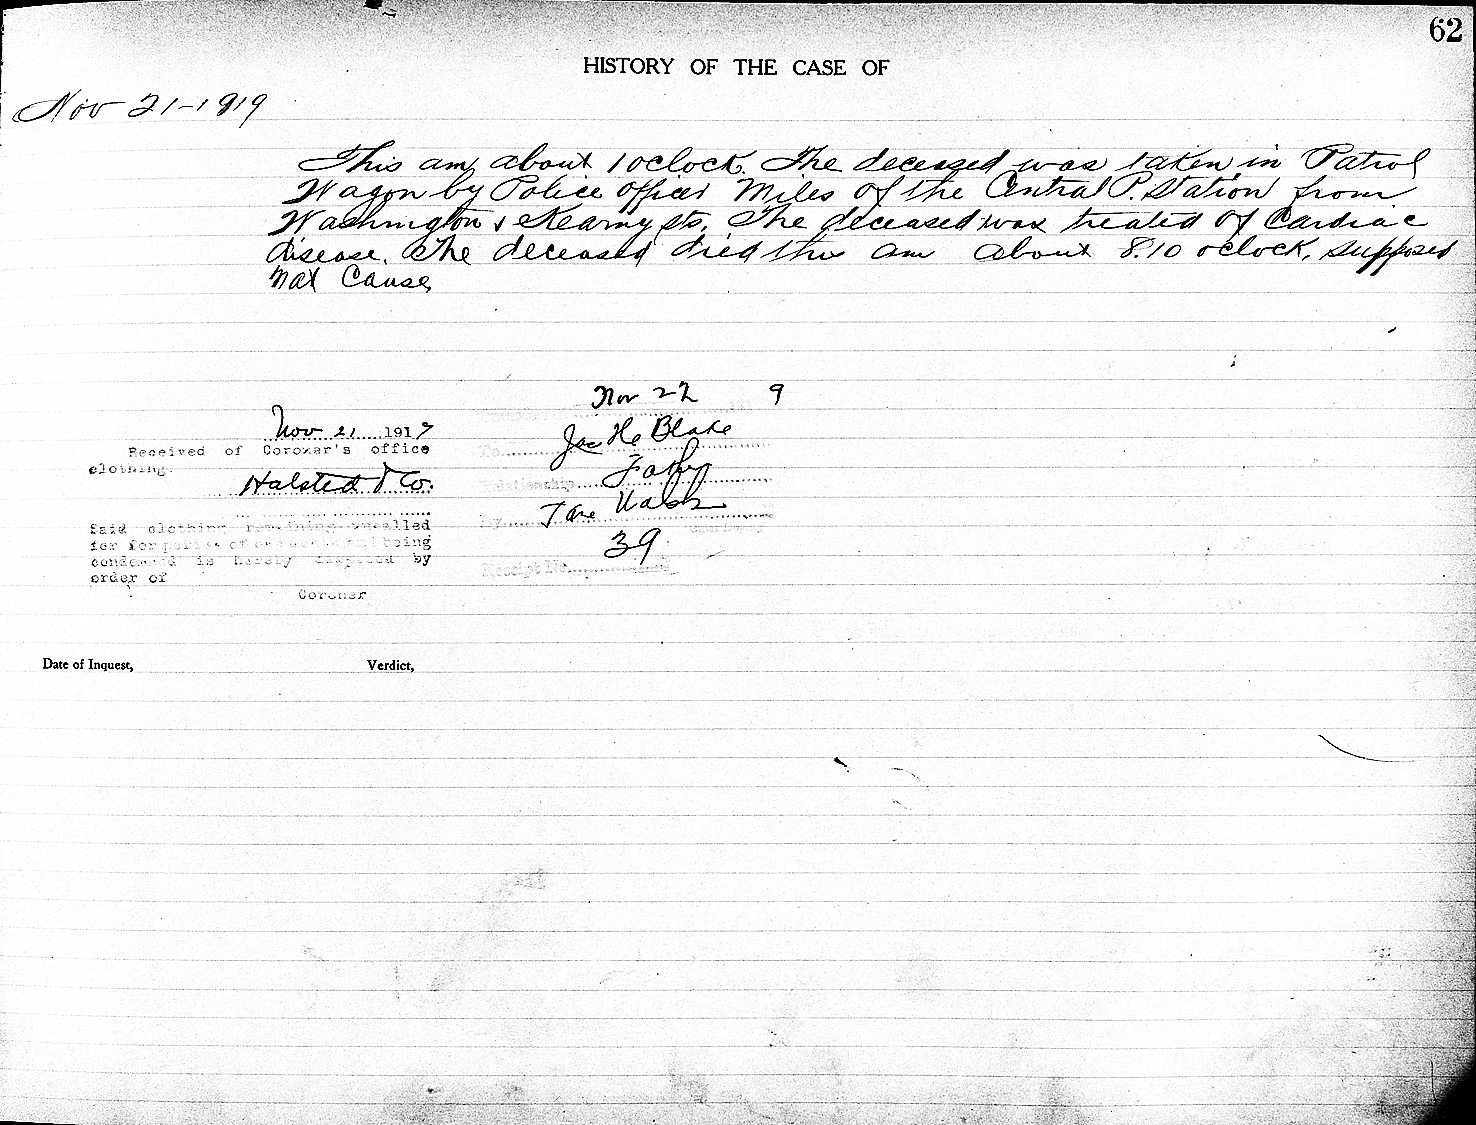 62
HISTORY OF THE CASE OF
Nov 21-1919
This am about 1 oclock. The deceased was taken in Patrol
Wagon by Police officer Miles of the Central P. Station from
Washington & Kearny sts. The deceased was treated of Cardiac
disease. The deceased died this am about 8.10 oclock, supposed
nat Cause
Nov 21 1919
Received of Coroner's office
clothing.
Halsted & Co.
Said clothing remaining uncalled
for for period of one and being
condemned is hereby disposed by
order of
Coroner
Nov 22 9
To Jas He Blake
Relationship
By
39
Receipt No.
Date of Inquest, Verdict,